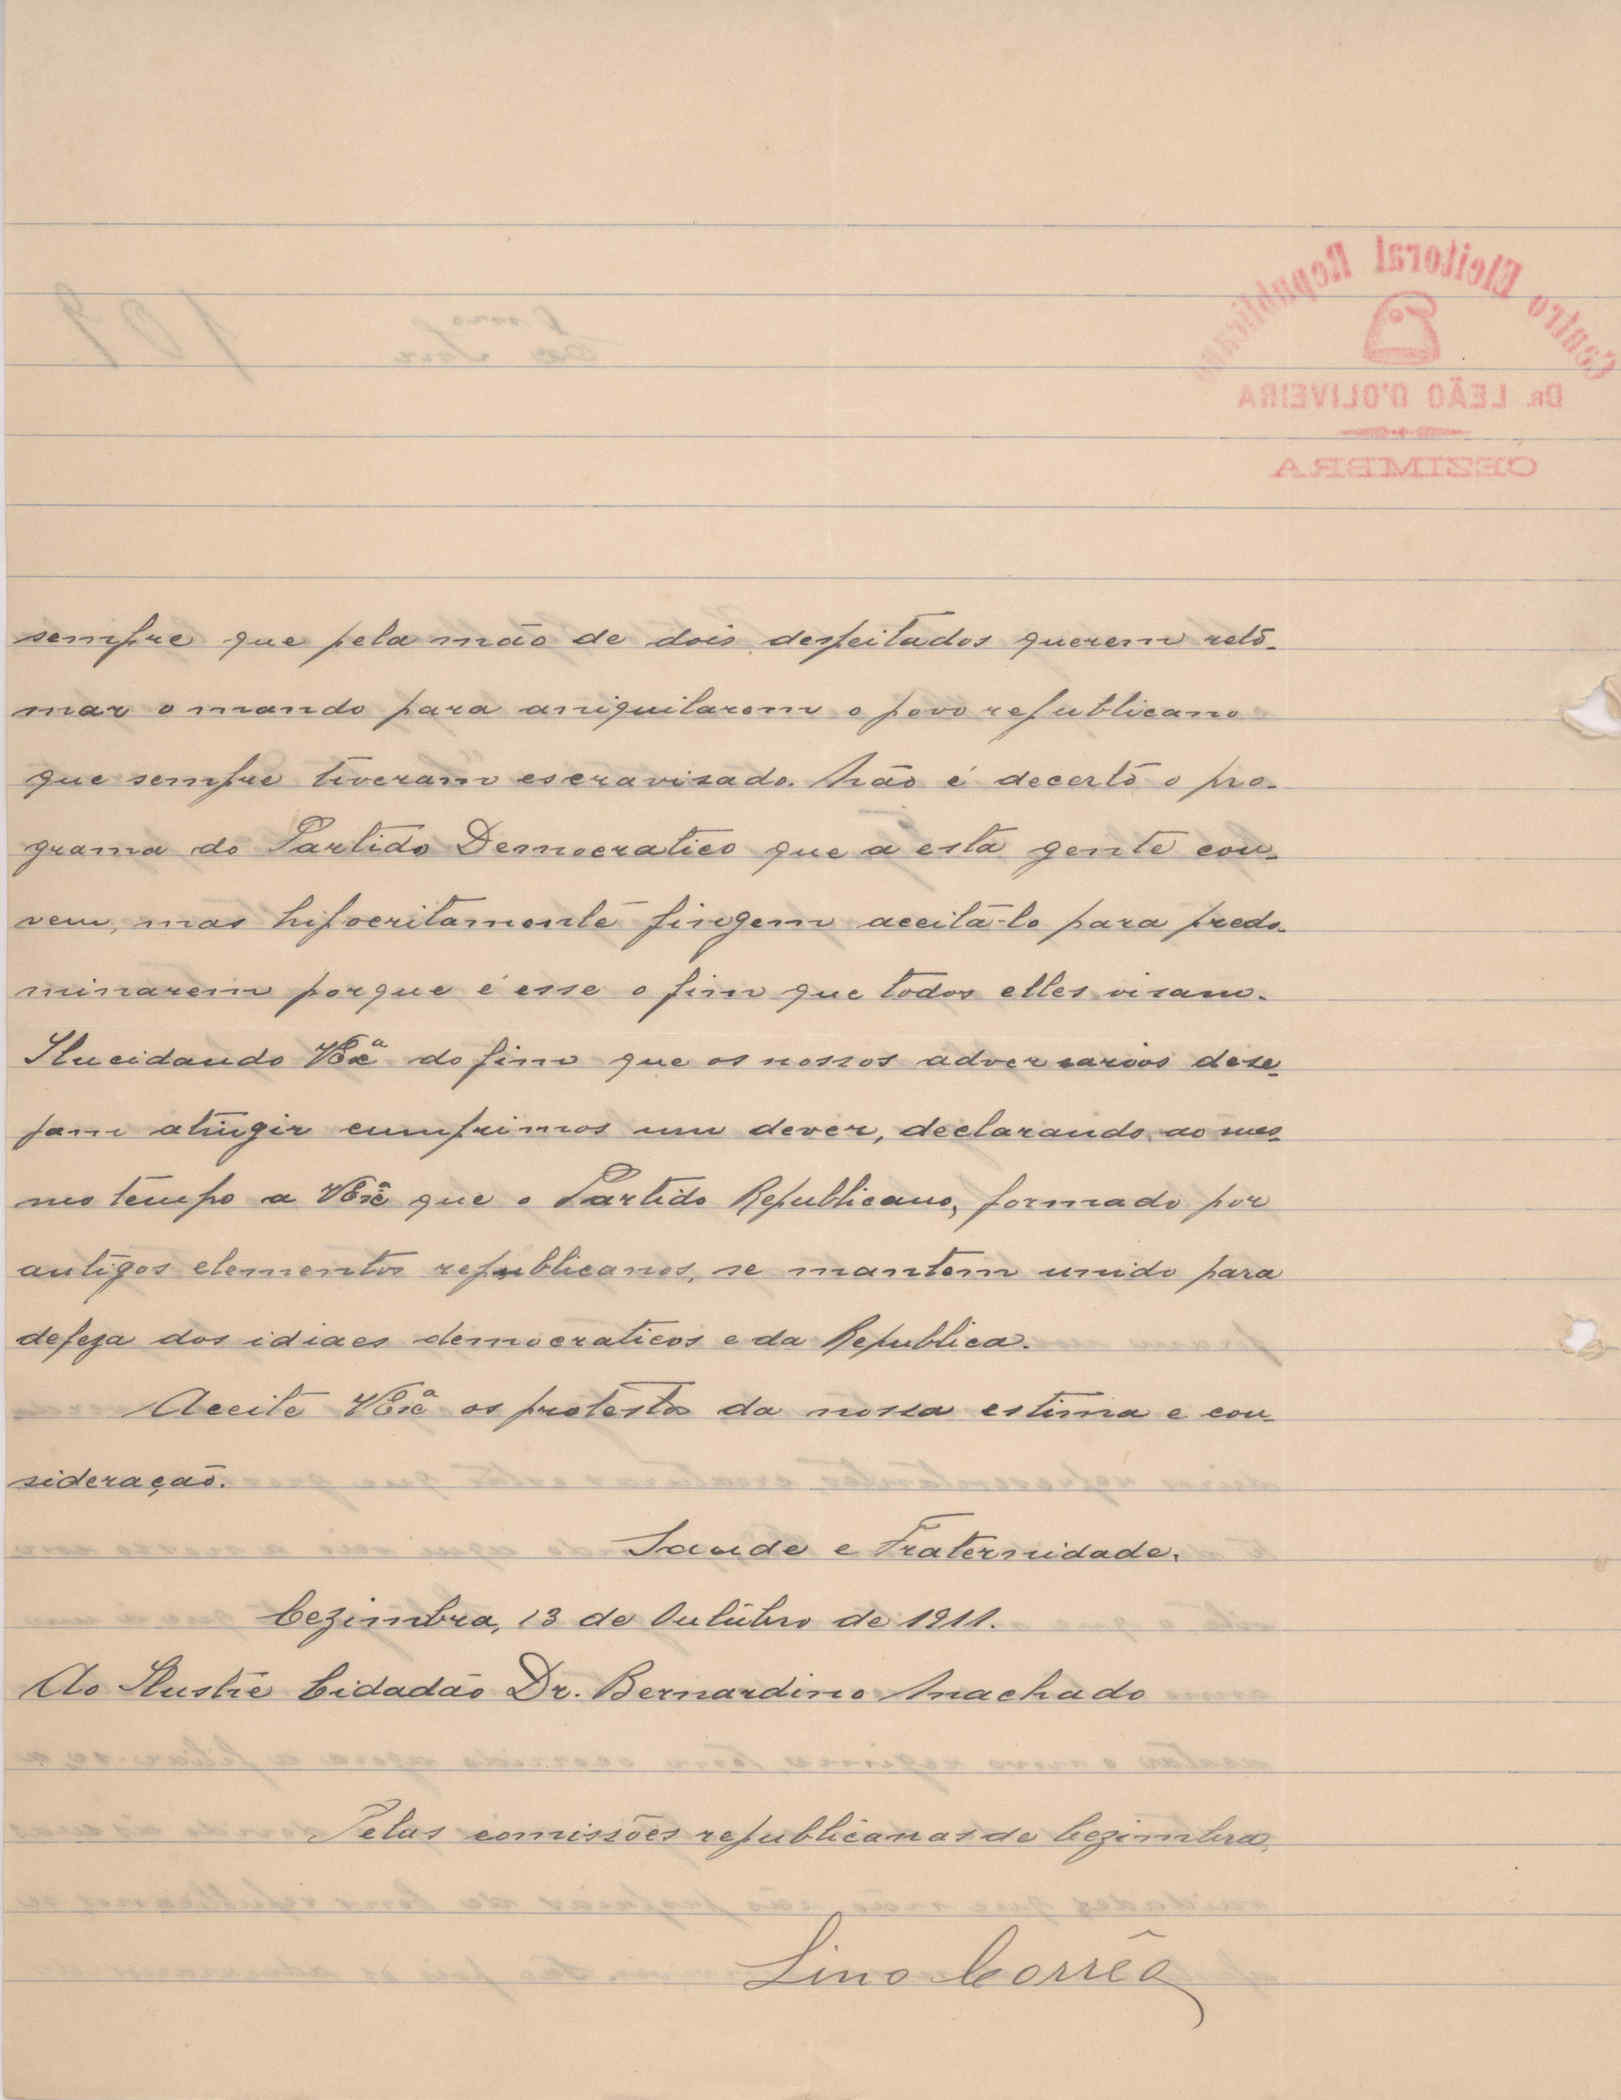 Centro Eleitoral Republicano
Dr. LEÃO D'OLIVEIRA
CEZIMBRA
109
sempre que pela mão de dois despeitados querem reto-
mar o mando para aniquilarem o povo republicano
que sempre tiveram escravisado. Não é decerto o pro-
grama do Partido Democratico que a esta gente con-
vem, mas hipocritamente fingem aceitá-lo para predo-
minarem porque é esse o fim que todos elles visam.
Ilucidando VExª do fim que os nossos adversarios dese-
jam atingir cumprimos um dever, declarando ao mes-
mo tempo a VExª que o Partido Republicano, formado por
antigos elementos republicanos, se mantem unido para
defeza dos idiaes democraticos e da Republica.
Aceite VExª os protestos da nossa estima e con-
sideração.
Saude e Fraternidade.
Cezimbra, 13 de Outubro de 1911.
Ao Ilustre Cidadão Dr. Bernardino Machado
Pelas comissões republicanas de Cezimbra,
Lino Corrêa